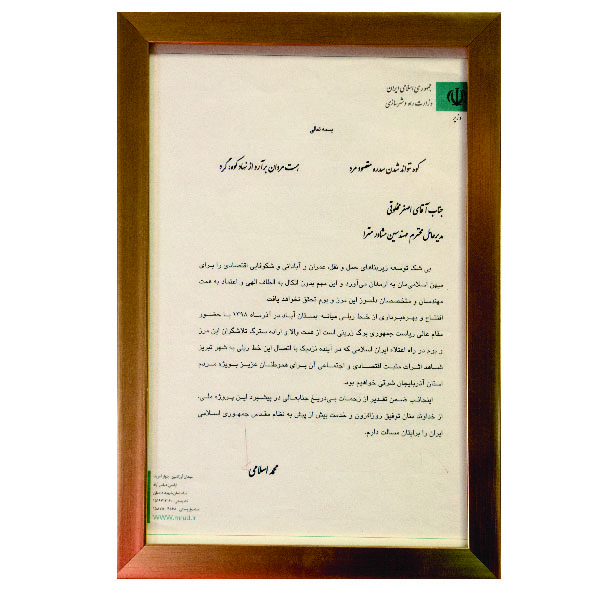 جمهوری اسلامی ایران
وزارت راه و شهرسازی
وزیر
بسمه تعالی
کوه نتواند شدن سد ره مقصود مرد همت مردان برآرد از نهاد کوه، گرد
جناب آقای اصغر
مدیرعامل محترم مهندسین مشاور مترا
بی شک توسعه زیربناهای حمل و نقل، عمران و آبادانی و شکوفایی اقتصادی را برای
میهن اسلامی‌مان به ارمغان می‌آورد و این مهم بدون اتکال به الطاف الهی و اعتماد به همت
مهندسان و متخصصان دلسوز این مرز و بوم تحقق نخواهد یافت.
افتتاح و بهره‌برداری از خط ریلی میانه بستان آباد در آذرماه ۱۳۹۸ با حضور
مقام عالی ریاست جمهوری برگ زرینی است از همت والا و اراده سترگ تلاشگران این مرز
و بوم در راه اعتلاء ایران اسلامی که در آینده نزدیک با اتصال این خط ریلی به شهر تبریز
شاهد اثرات مثبت اقتصادی و اجتماعی آن برای هموطنان عزیز بویژه مردم
استان آذربایجان شرقی خواهیم بود.
اینجانب ضمن تقدیر از زحمات بی‌دریغ جنابعالی در پیشبرد این پروژه ملی،
از خداوند منان توفیق روزافزون و خدمت بیش از پیش به نظام مقدس جمهوری اسلامی
ایران را برایتان مسألت دارم.
محمد اسلامی
www.mrud.ir